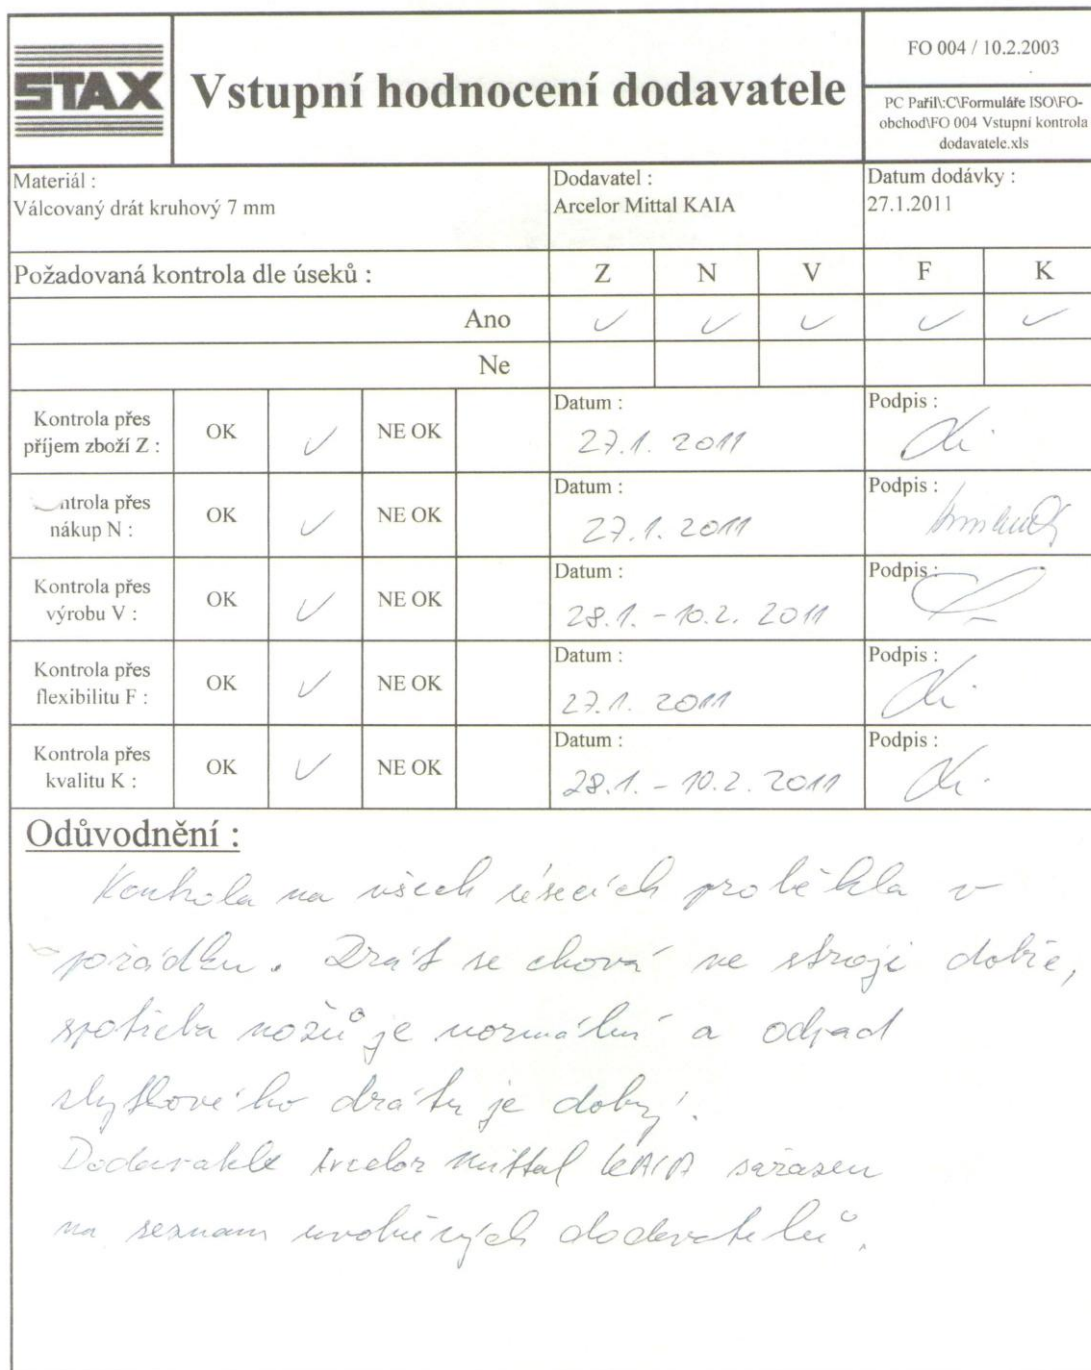 STAX
Vstupní hodnocení dodavatele
FO 004 / 10.2.2003
PC Pařil\:C\Formuláře ISO\FO-
obchod\FO 004 Vstupní kontrola
dodavatele.xls
Materiál :
Válcovaný drát kruhový 7 mm
Dodavatel :
Arcelor Mittal KAIA
Datum dodávky :
27.1.2011
Požadovaná kontrola dle úseků : Z N V F K
Ano ✓ ✓ ✓ ✓ ✓
Ne
Kontrola přes
příjem zboží Z :
OK ✓ NE OK
Datum :
27.1. 2011
Podpis :
ntrola přes
nákup N :
OK ✓ NE OK
Datum :
27.1. 2011
Podpis :
Kontrola přes
výrobu V :
OK ✓ NE OK
Datum :
28.1. - 10.2. 2011
Podpis :
Kontrola přes
flexibilitu F :
OK ✓ NE OK
Datum :
27.1. 2011
Podpis :
Kontrola přes
kvalitu K :
OK ✓ NE OK
Datum :
28.1. - 10.2. 2011
Podpis :
Odůvodnění :
Kontrola na všech úsecích proběhla v
pořádku. Drát se chová ve stroji dobře,
spotřeba nožů je normální a odpad
zbytkového drátu je dobrý.
Dodavatel Arcelor Mittal KAIA zařazen
na seznam uvolněných dodavatelů.